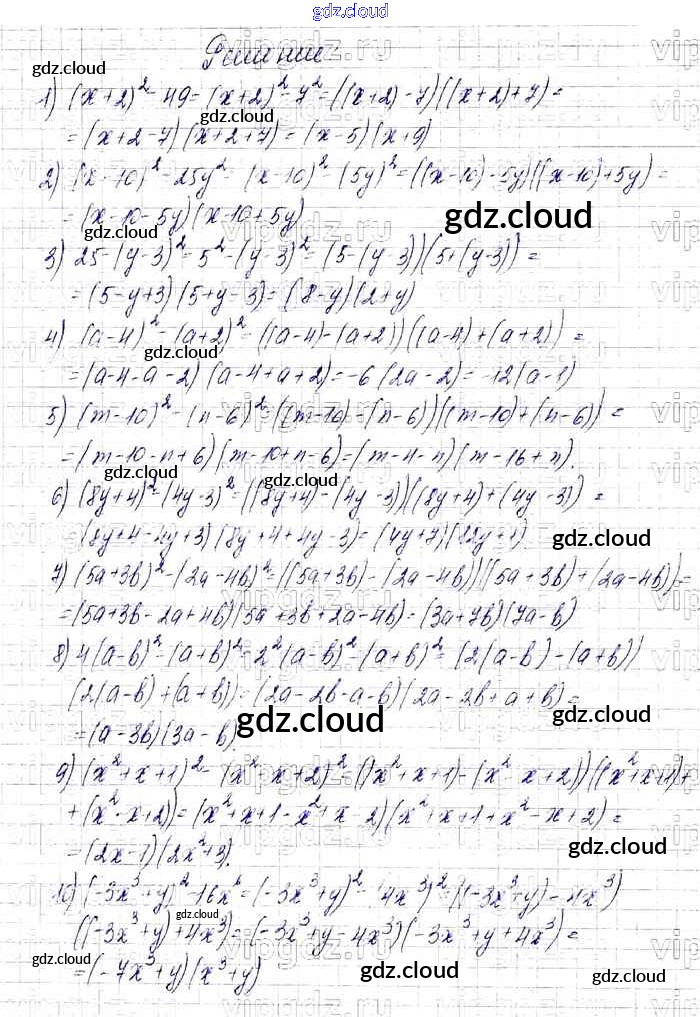 gdz.cloud
Решение
gdz.cloud
1) (x+2)² - 49 = (x+2)² - 7² = ((x+2) - 7)((x+2) + 7) =
gdz.cloud
= (x+2-7)(x+2+7) = (x-5)(x+9)
gdz.cloud
2) (x-10)² - 25y² = (x-10)² - (5y)² = ((x-10) - 5y)((x-10) + 5y) =
= (x-10-5y)(x-10+5y)
gdz.cloud
3) 25 - (y-3)² = 5² - (y-3)² = (5 - (y-3))(5 + (y-3)) =
= (5-y+3)(5+y-3) = (8-y)(2+y)
4) (a-4)² - (a+2)² = ((a-4) - (a+2))((a-4) + (a+2)) =
gdz.cloud
= (a-4-a-2)(a-4+a+2) = -6(2a-2) = -12(a-1)
5) (m-10)² - (n-6)² = ((m-10) - (n-6))((m-10) + (n-6)) =
= (m-10-n+6)(m-10+n-6) = (m-4-n)(m-16+n).
gdz.cloud
gdz.cloud
6) (8y+4)² - (4y-3)² = ((8y+4) - (4y-3))((8y+4) + (4y-3)) =
(8y+4-4y+3)(8y+4+4y-3) = (4y+7)(12y+1)
gdz.cloud
7) (5a+3b)² - (2a-4b)² = ((5a+3b) - (2a-4b))((5a+3b) + (2a-4b)) =
= (5a+3b-2a+4b)(5a+3b+2a-4b) = (3a+7b)(7a-b)
8) 4(a-b)² - (a+b)² = 2²(a-b)² - (a+b)² = (2(a-b) - (a+b))
(2(a-b) + (a+b)) = (2a-2b-a-b)(2a-2b+a+b) =
gdz.cloud
gdz.cloud
= (a-3b)(3a-b)
9) (x²+x+1)² - (x²-x+2)² = ((x²+x+1) - (x²-x+2))((x²+x+1) +
+ (x²-x+2)) = (x²+x+1-x²+x-2)(x²+x+1+x²-x+2) =
gdz.cloud
= (2x-1)(2x²+3).
10) (-3x³+y)² - 16x⁶ = (-3x³+y)² - (4x³)² = ((-3x³+y) - 4x³)
gdz.cloud
((-3x³+y) + 4x³) = (-3x³+y-4x³)(-3x³+y+4x³) =
gdz.cloud
= (-7x³+y)(x³+y)
gdz.cloud
gdz.cloud
gdz.cloud